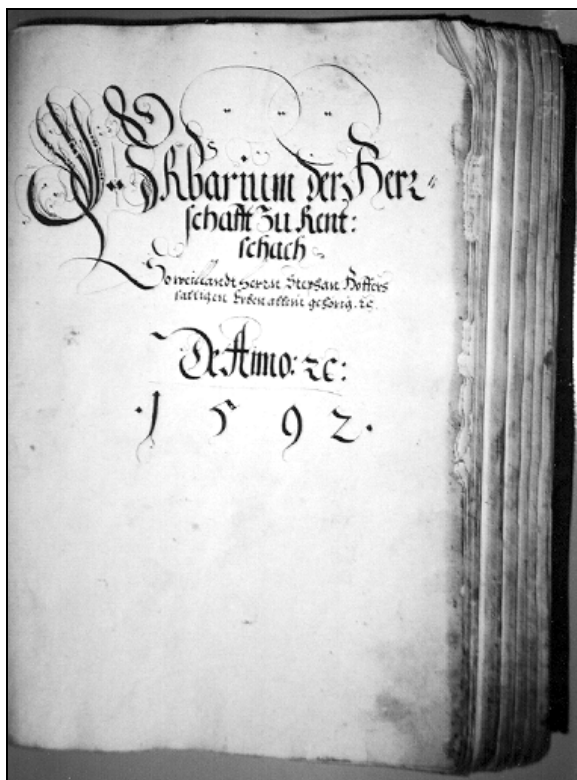 Urbarium der Herr-
schafft zu Rent:
schach
So weillandt Herrn Stephan Hoffers
salligen Erben allein gehörig. ꝛc.
De Anno: ꝛc:
·1592·